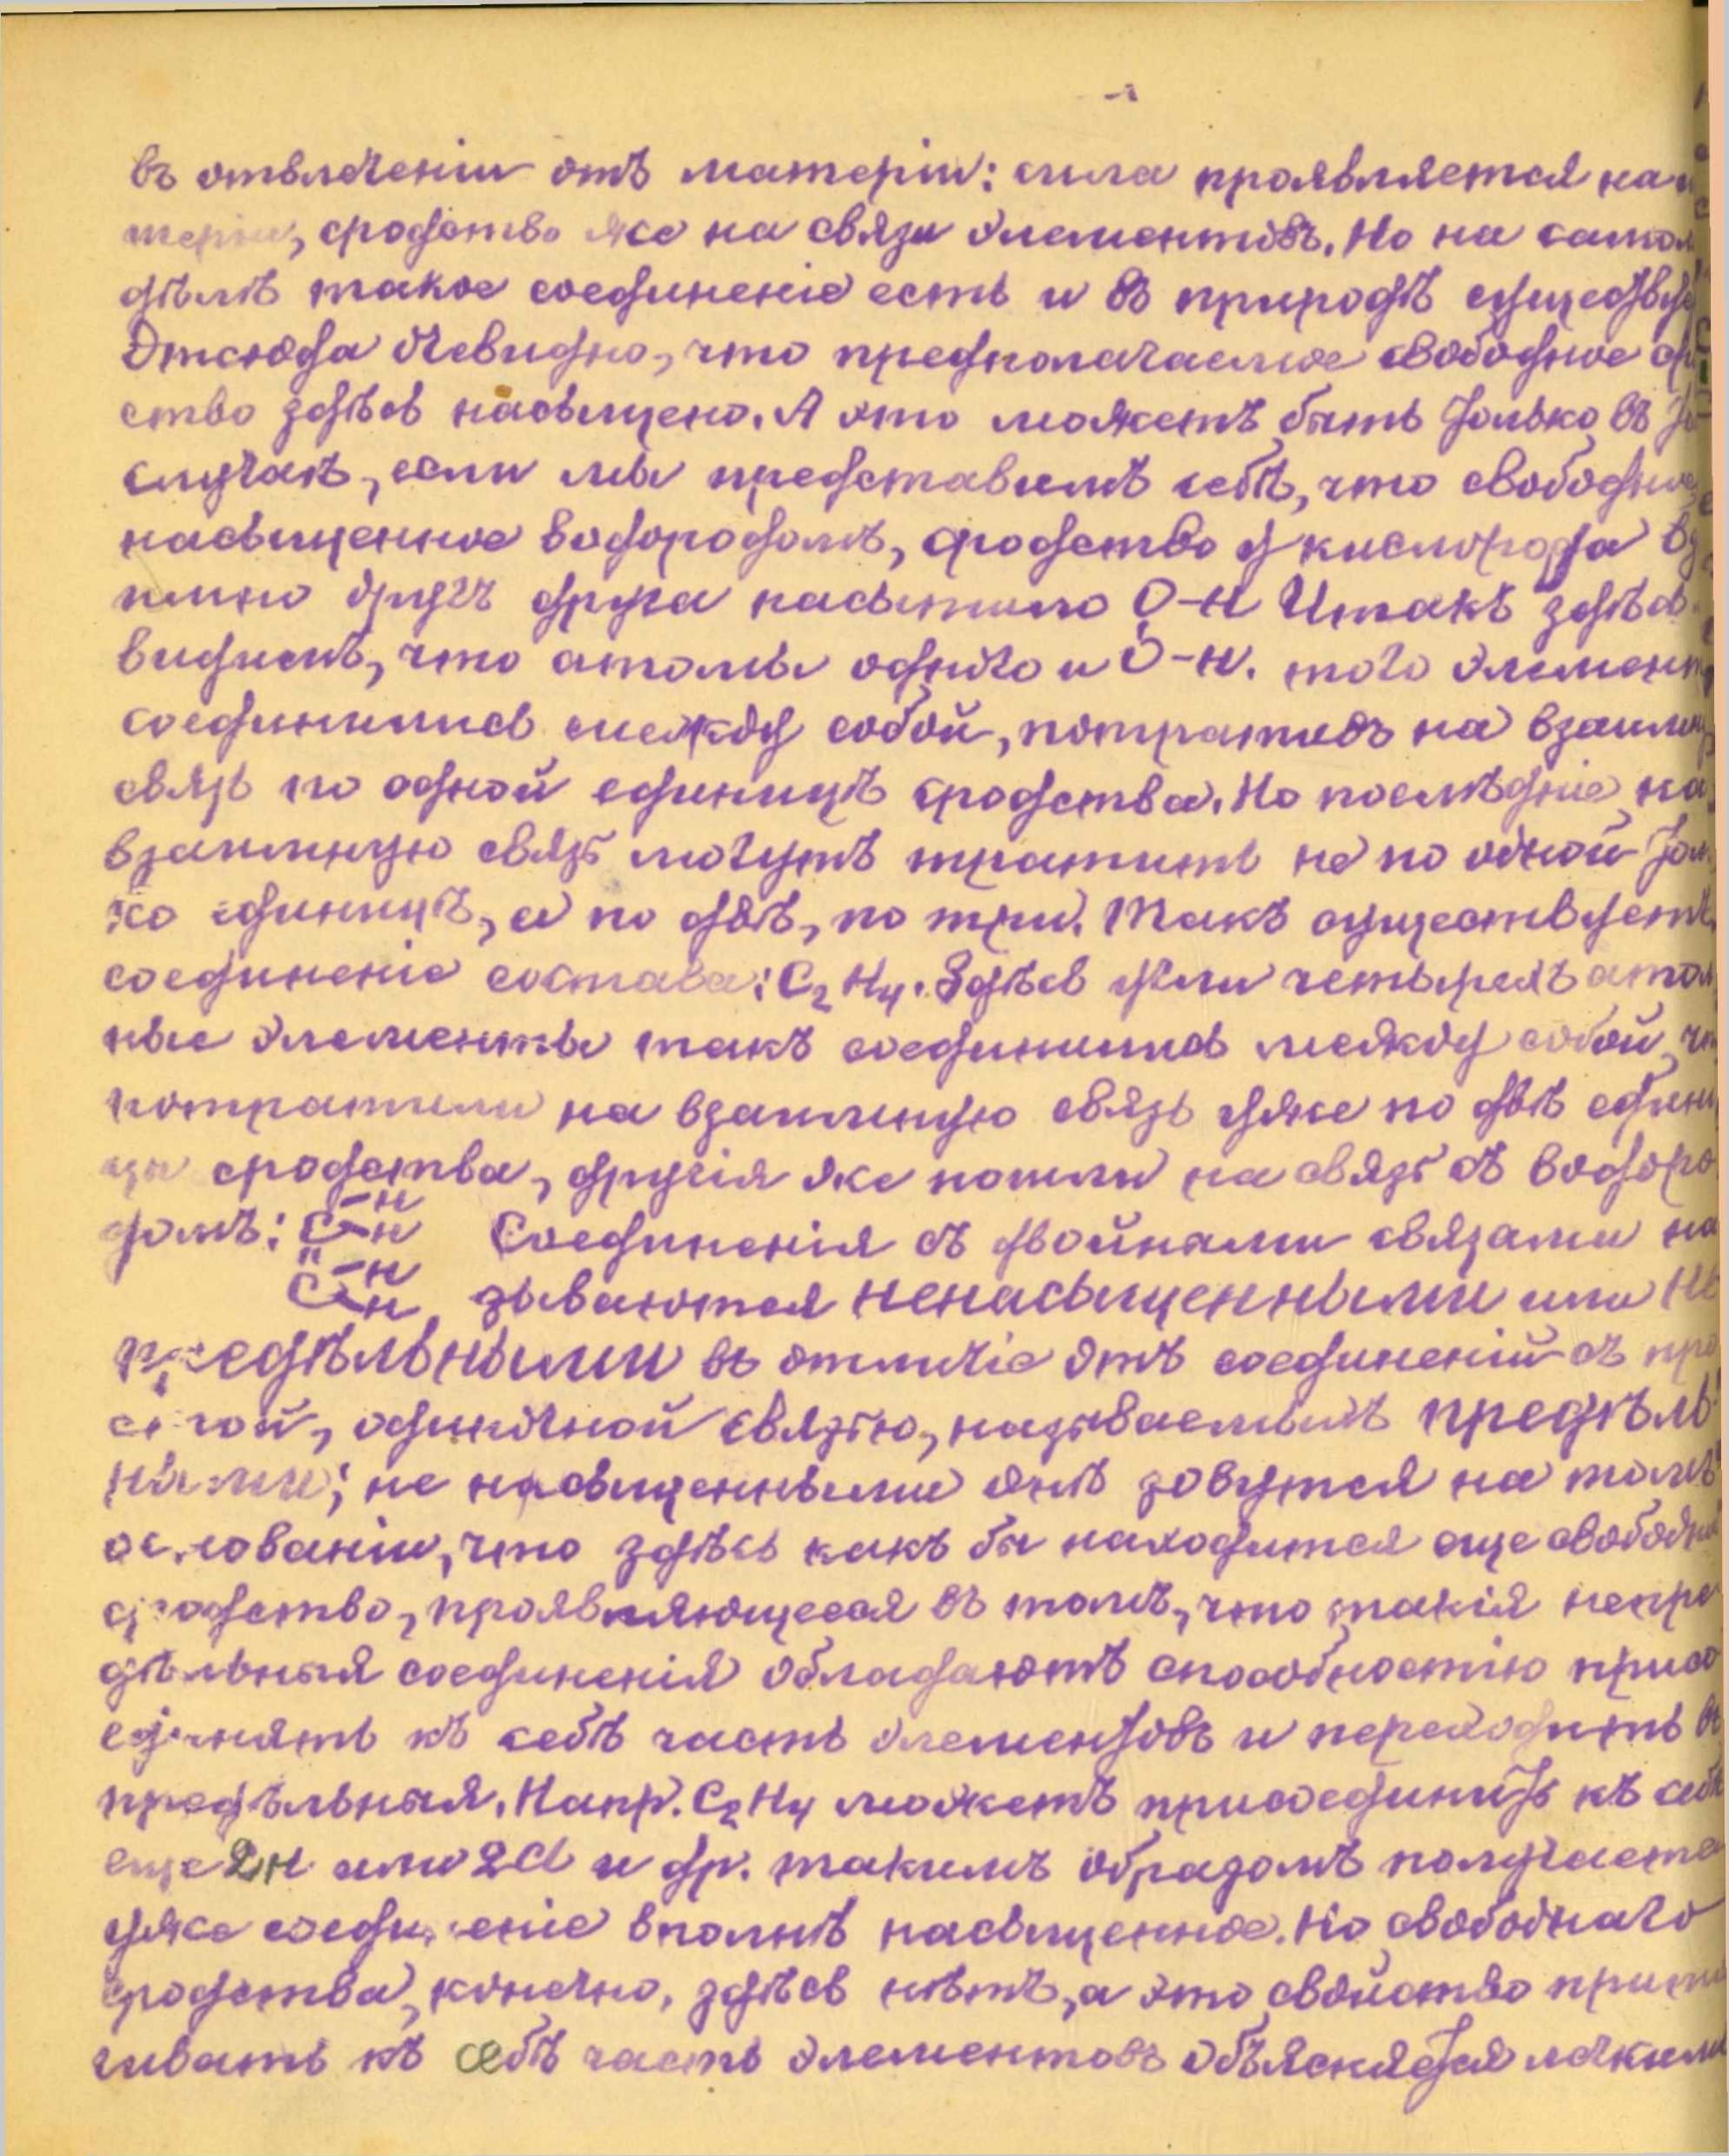 въ отвлеченіи отъ матеріи: сила проявляется на
теріи, сродство же на связи элементовъ. Но на самом
дѣлѣ такое соединеніе есть и въ природѣ существуе
Отсюда очевидно, что предполагаемое свободное ср
ство здѣсь насыщено. А это можетъ быть только въ
случаѣ, если мы представимъ себѣ, что свободное
насыщенное водородомъ, сродство у кислорода вз
имно другъ друга насытило O-H Итакъ здѣсь
видимъ, что атомы одного и O-H. того элемент
соединились между собой, потративъ на взаимн
связь по одной единицѣ сродства. Но послѣдніе на
взаимную связь могутъ тратить не по одной толь
ко единицѣ, а по двѣ, по три. Такъ существуетъ
соединеніе состава: C₂H₄. Здѣсь четырехъ атом
ные элементы такъ соединились между собой, что
потратили на взаимную связь уже по двѣ едини
цы сродства, другія же пошли на связь съ водоро
домъ: C-H-H Соединенія съ двойными связами на
C-H-H зываются ненасыщенными или не
предѣльными въ отличіе отъ соединеній съ про
стой, одиночной связью, называемыхъ предѣль
ными; не насыщенными онѣ зовутся на томъ
основаніи, что здѣсь какъ бы находится еще свободн
сродство, проявляющееся въ томъ, что такія непре
дѣльныя соединенія обладаютъ способностію присо
единять къ себѣ часть элементовъ и переходить въ
предѣльныя. Напр. C₂H₄ можетъ присоединить къ себѣ
еще 2H или 2Cl и др. такимъ образомъ получаетс
уже соединеніе вполнѣ насыщенное. Но свободнаго
сродства, конечно, здѣсь нѣтъ, а это свойство притя
гивать къ себѣ часть элементовъ объясняется